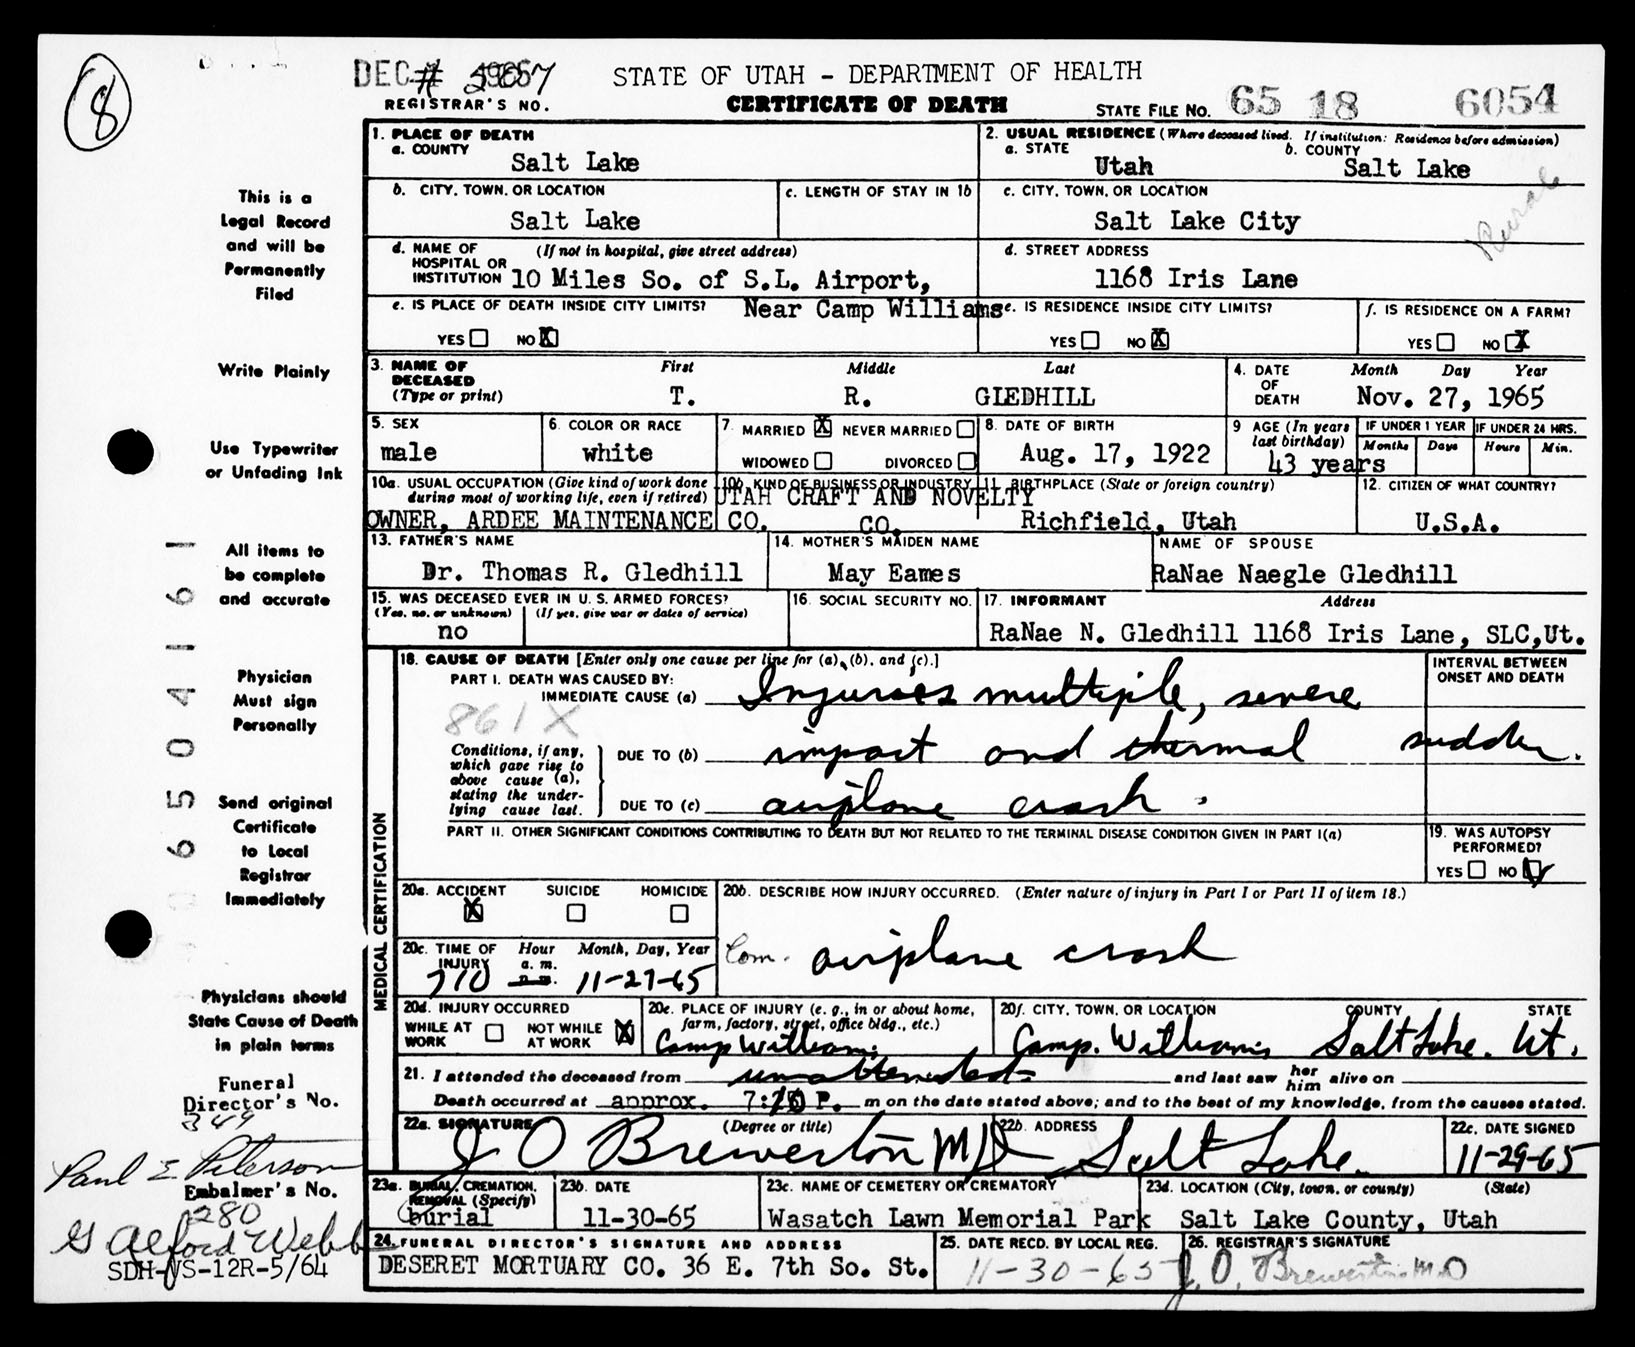 8
DEC # 5867 STATE OF UTAH - DEPARTMENT OF HEALTH
REGISTRAR'S NO. CERTIFICATE OF DEATH STATE FILE NO. 65 18 6054
1. PLACE OF DEATH
a. COUNTY
Salt Lake
2. USUAL RESIDENCE (Where deceased lived. If institution: Residence before admission)
a. STATE b. COUNTY
Utah Salt Lake
Rural
b. CITY, TOWN, OR LOCATION
Salt Lake
c. LENGTH OF STAY IN 1b
c. CITY, TOWN, OR LOCATION
Salt Lake City
d. NAME OF HOSPITAL OR INSTITUTION (If not in hospital, give street address)
10 Miles So. of S.L. Airport,
d. STREET ADDRESS
1168 Iris Lane
e. IS PLACE OF DEATH INSIDE CITY LIMITS? Near Camp Williams
YES NO X
e. IS RESIDENCE INSIDE CITY LIMITS?
YES NO X
f. IS RESIDENCE ON A FARM?
YES NO X
3. NAME OF DECEASED (Type or print)
First Middle Last
T. R. GLEDHILL
4. DATE OF DEATH
Month Day Year
Nov. 27, 1965
5. SEX
male
6. COLOR OR RACE
white
7. MARRIED X NEVER MARRIED
WIDOWED DIVORCED
8. DATE OF BIRTH
Aug. 17, 1922
9 AGE (In years last birthday)
43 years
IF UNDER 1 YEAR
Months Days
IF UNDER 24 HRS.
Hours Min.
10a. USUAL OCCUPATION (Give kind of work done during most of working life, even if retired)
OWNER, ARDEE MAINTENANCE CO.
10b. KIND OF BUSINESS OR INDUSTRY
UTAH CRAFT AND NOVELTY CO.
11. BIRTHPLACE (State or foreign country)
Richfield, Utah
12. CITIZEN OF WHAT COUNTRY?
U.S.A.
13. FATHER'S NAME
Dr. Thomas R. Gledhill
14. MOTHER'S MAIDEN NAME
May Eames
NAME OF SPOUSE
RaNae Naegle Gledhill
15. WAS DECEASED EVER IN U. S. ARMED FORCES?
(Yes, no, or unknown) (If yes, give war or dates of service)
no
16. SOCIAL SECURITY NO.
17. INFORMANT Address
RaNae N. Gledhill 1168 Iris Lane, SLC,Ut.
MEDICAL CERTIFICATION
18. CAUSE OF DEATH [Enter only one cause per line for (a), (b), and (c).]
PART I. DEATH WAS CAUSED BY:
IMMEDIATE CAUSE (a) Injuries multiple, severe
861X
Conditions, if any, which gave rise to above cause (a), stating the underlying cause last.
DUE TO (b) impact and thermal
DUE TO (c) airplane crash.
INTERVAL BETWEEN ONSET AND DEATH
sudden.
PART II. OTHER SIGNIFICANT CONDITIONS CONTRIBUTING TO DEATH BUT NOT RELATED TO THE TERMINAL DISEASE CONDITION GIVEN IN PART I(a)
19. WAS AUTOPSY PERFORMED?
YES NO
20a. ACCIDENT SUICIDE HOMICIDE
X
20b. DESCRIBE HOW INJURY OCCURRED. (Enter nature of injury in Part I or Part II of item 18.)
Com. airplane crash
20c. TIME OF INJURY Hour Month, Day, Year
a. m.
p. m.
710 11-27-65
20d. INJURY OCCURRED
WHILE AT WORK NOT WHILE AT WORK X
20e. PLACE OF INJURY (e. g., in or about home, farm, factory, street, office bldg., etc.)
Camp Williams
20f. CITY, TOWN, OR LOCATION COUNTY STATE
Camp. Williams Salt Lake. Ut.
21. I attended the deceased from unattended and last saw her him alive on
Death occurred at approx. 7:10 P. m on the date stated above; and to the best of my knowledge, from the causes stated.
22a. SIGNATURE (Degree or title)
J O Brewerton MD
22b. ADDRESS
Salt Lake.
22c. DATE SIGNED
11-29-65
23a. BURIAL, CREMATION, REMOVAL (Specify)
burial
23b. DATE
11-30-65
23c. NAME OF CEMETERY OR CREMATORY
Wasatch Lawn Memorial Park
23d. LOCATION (City, town, or county) (State)
Salt Lake County, Utah
24. FUNERAL DIRECTOR'S SIGNATURE AND ADDRESS
DESERET MORTUARY CO. 36 E. 7th So. St.
25. DATE RECD. BY LOCAL REG.
11-30-65
26. REGISTRAR'S SIGNATURE
J. O. Brewerton M.D
This is a
Legal Record
and will be
Permanently
Filed
Write Plainly
Use Typewriter
or Unfading Ink
All items to
be complete
and accurate
Physician
Must sign
Personally
Send original
Certificate
to Local
Registrar
Immediately
Physicians should
State Cause of Death
in plain terms
Funeral
Director's No.
349
Paul E Peterson
Embalmer's No.
280
G Alford Webb
SDH-VS-12R-5/64
6504161